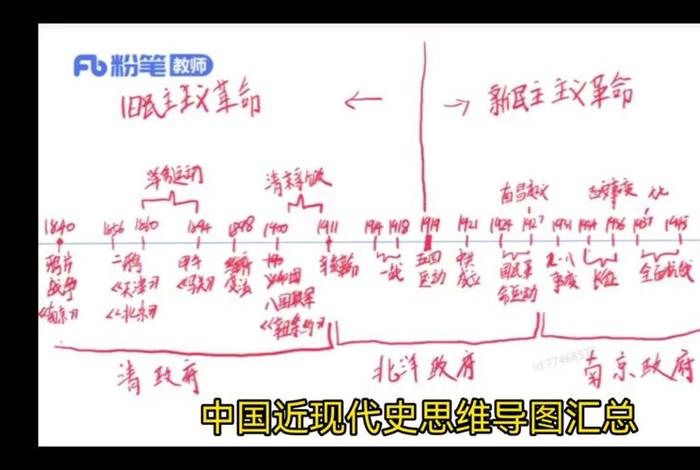 粉笔教师
旧民主主义革命 ← → 新民主主义革命
洋务运动 清末新政 南昌起义 西安事变 七七
1840 1856 1860 1894 1898 1900 1911 1914 1918 1919 1921 1924 1927 1931 1934 1936 1937 1945
鸦片 二鸦 甲午 维新 义和团 辛亥革命 一战 五四 中共 国民革 九一八 长征 全面抗战
战争 《天津》 《马关》 变法 八国联军 运动 成立 命运动 事变
《南京》 《北京》 《辛丑条约》
清政府 北洋政府 南京政府
中国近现代史思维导图汇总